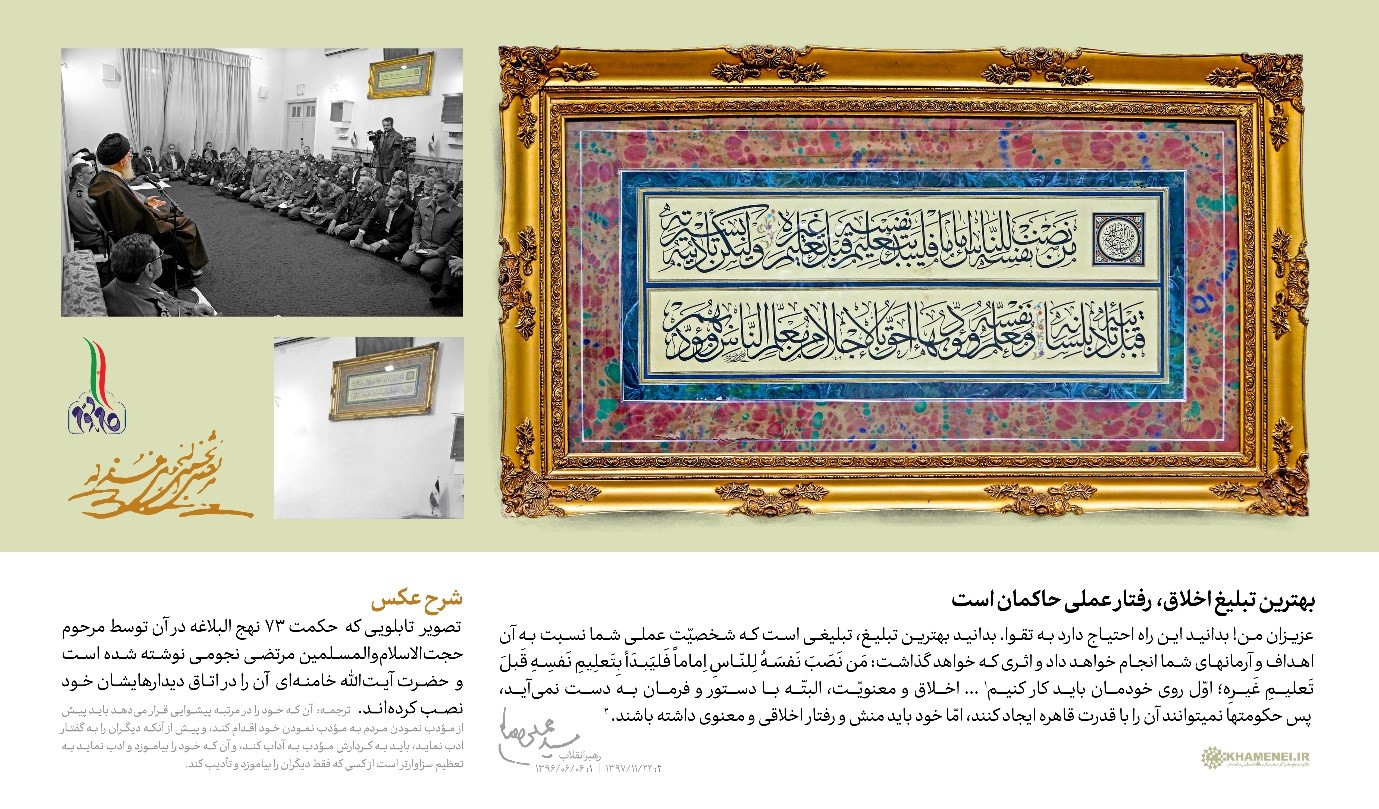 من نصب نفسه للناس إماما فليبدأ بتعليم نفسه قبل تعليم غيره وليكن تأديبه بسيرته
قبل تأديبه بلسانه ومعلم نفسه ومؤدبها أحق بالإجلال من معلم الناس ومؤدبهم
بهترین تبلیغ اخلاق، رفتار عملی حاکمان است
عزیزان من! بدانید این راه احتیاج دارد به تقوا. بدانید بهترین تبلیغ، تبلیغی است که شخصیّت عملی شما نسبت به آن
اهداف و آرمانهای شما انجام خواهد داد و اثری که خواهد گذاشت: مَن نَصَبَ نَفسَهُ لِلنّاسِ اِماماً فَلیَبدَأ بِتَعلیمِ نَفسِهِ قَبلَ
تَعلیمِ غَیرِه؛ اوّل روی خودمان باید کار کنیم۱ ... اخلاق و معنویّت، البتّه با دستور و فرمان به دست نمی‌آید،
پس حکومتها نمیتوانند آن را با قدرت قاهره ایجاد کنند، امّا خود باید منش و رفتار اخلاقی و معنوی داشته باشند. ۲
رهبر انقلاب
۱: ۱۳۹۶/۰۶/۰۶ | ۲: ۱۳۹۷/۱۱/۲۲
KHAMENEI.IR
شرح عکس
تصویر تابلویی که حکمت ۷۳ نهج البلاغه در آن توسط مرحوم
حجت‌الاسلام‌والمسلمین مرتضی نجومی نوشته شده است
و حضرت آیت‌الله خامنه‌ای آن را در اتاق دیدارهایشان خود
نصب کرده‌اند. ترجمه: آن که خود را در مرتبه پیشوایی قرار می‌دهد باید پیش
از مؤدب نمودن مردم به مؤدب نمودن خود اقدام کند، و پیش از آنکه دیگران را به گفتار
ادب نماید، باید به کردارش مؤدب به آداب کند، و آن که خود را بیاموزد و ادب نماید به
تعظیم سزاوارتر است از کسی که فقط دیگران را بیاموزد و تأدیب کند.